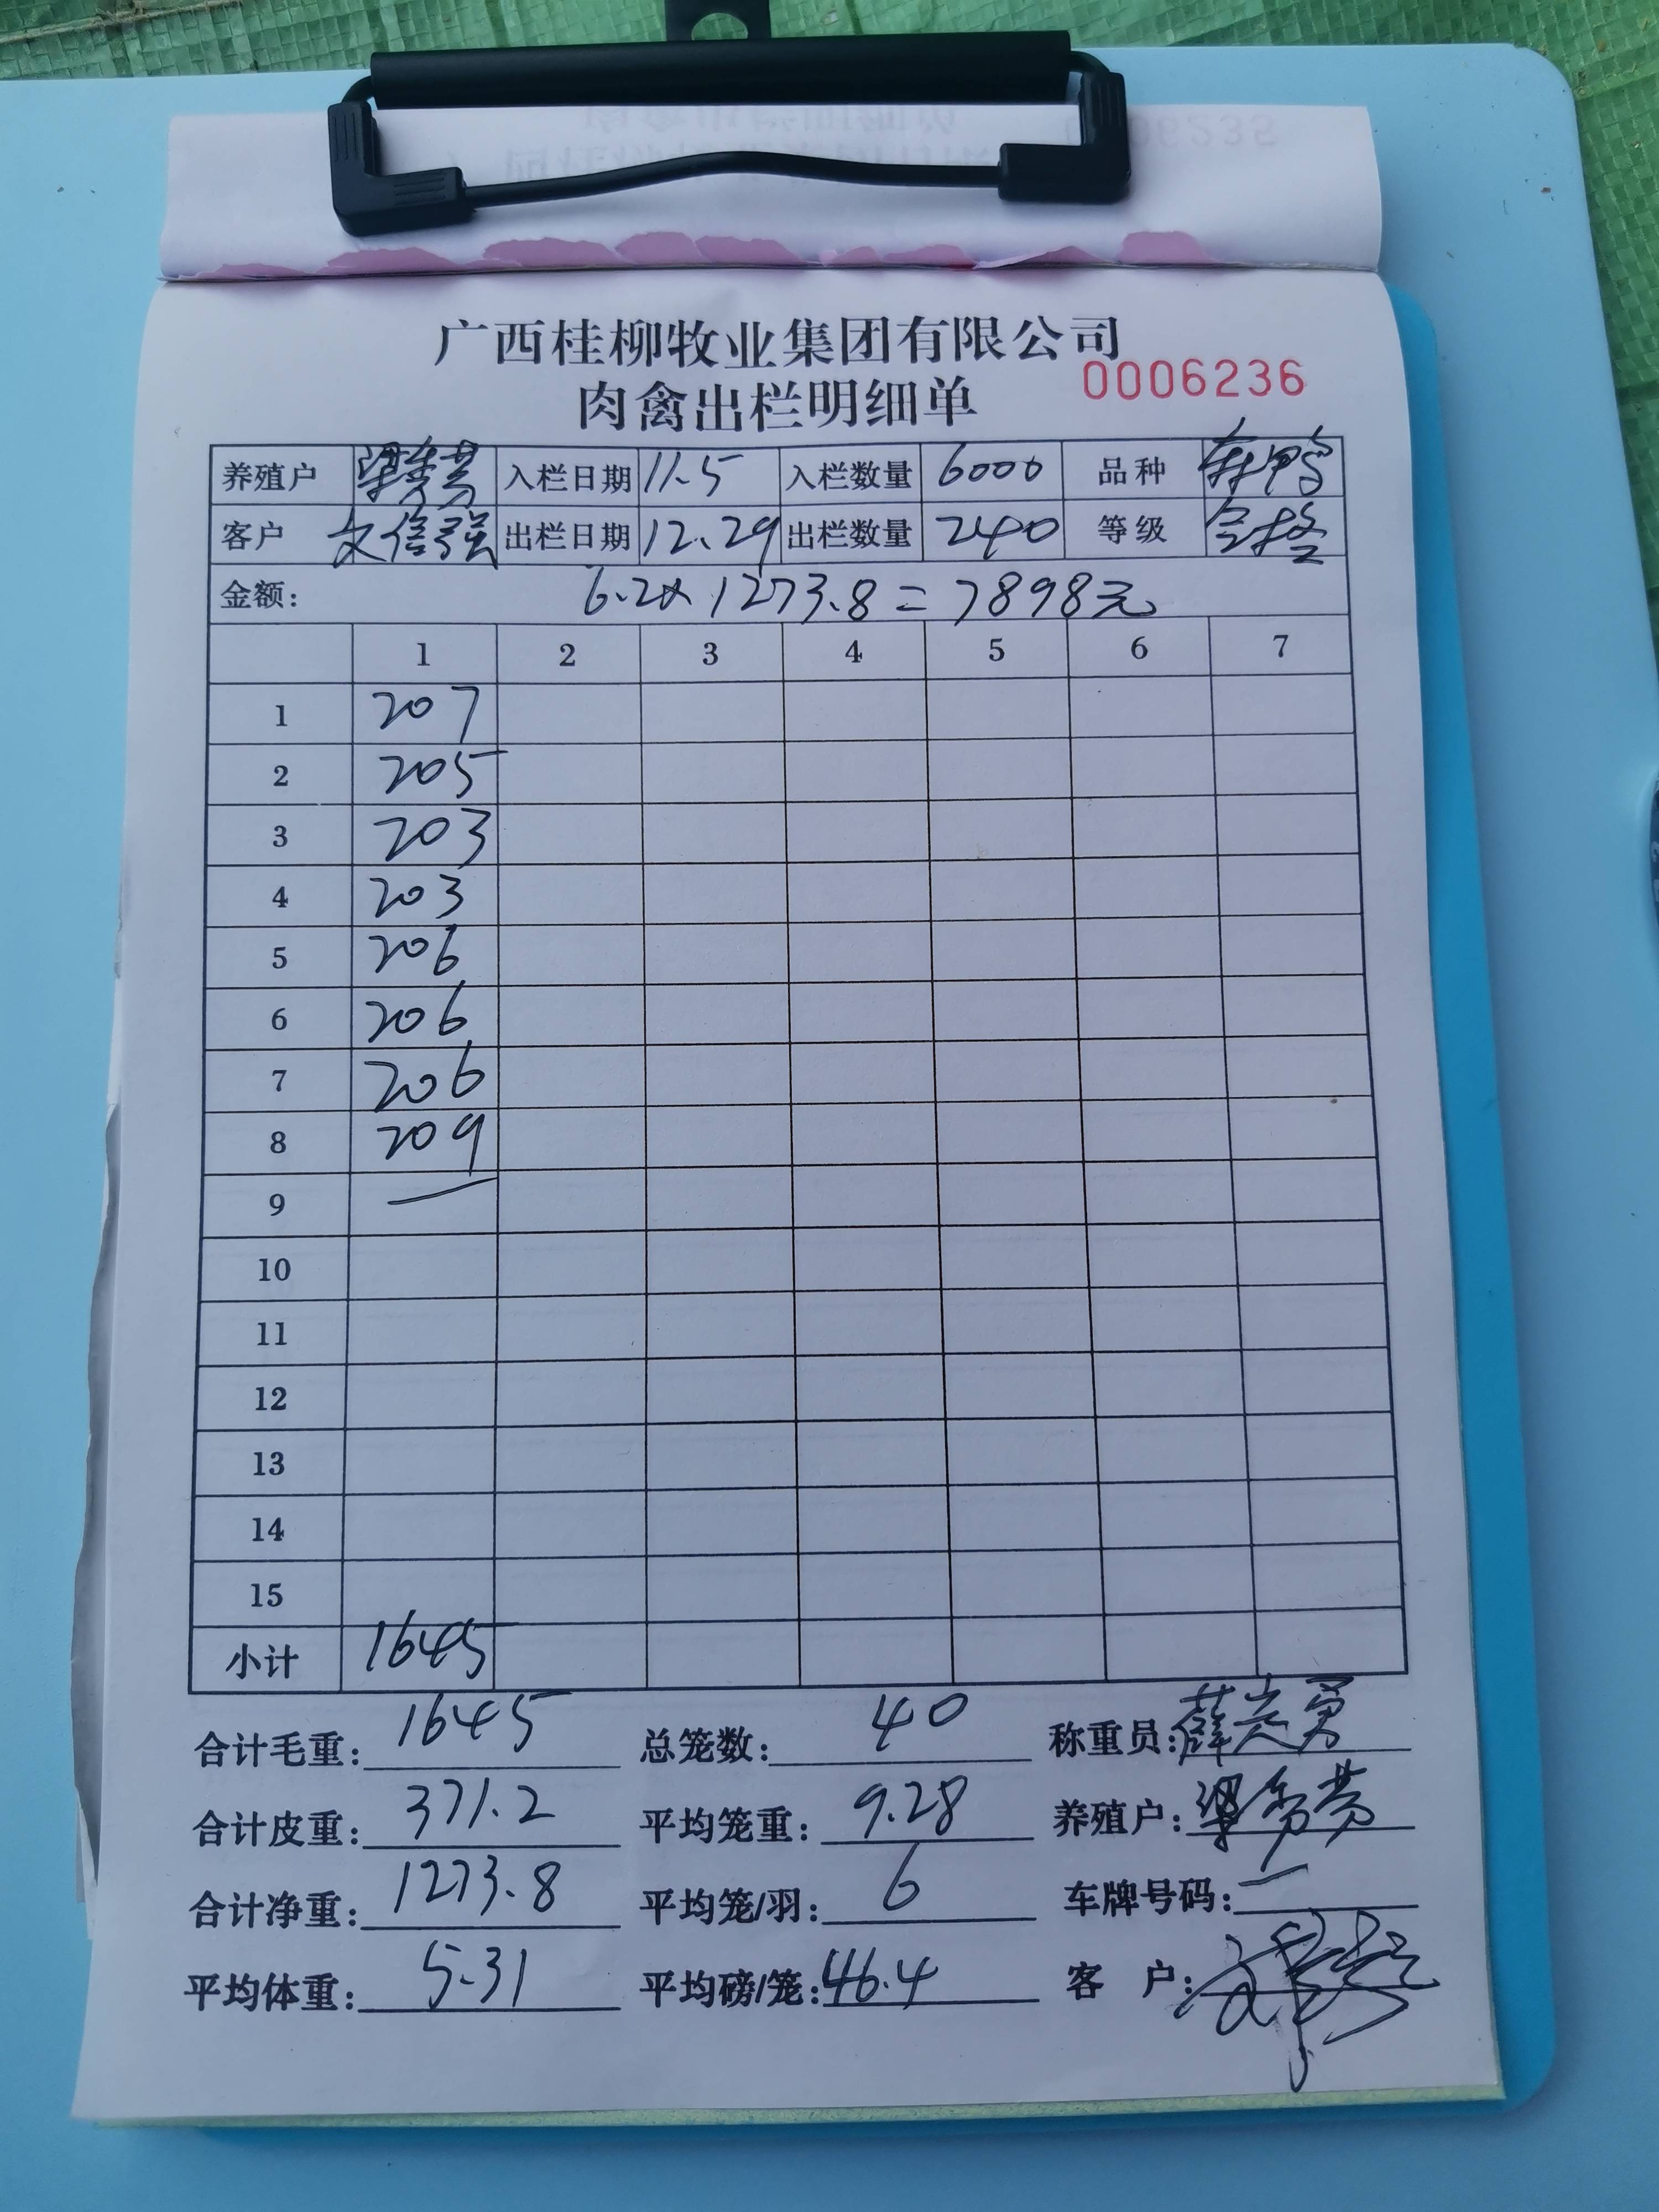 广西桂柳牧业集团有限公司
肉禽出栏明细单 0006236
养殖户 入栏日期 11.5 入栏数量 6000 品种
客户 文信强 出栏日期 12.29 出栏数量 240 等级 合格
金额: 6.2x 1273.8 = 7898元
1 2 3 4 5 6 7
1 207
2 205
3 203
4 203
5 206
6 206
7 206
8 209
9 —
10
11
12
13
14
15
小计 1645
合计毛重: 1645 总笼数: 40 称重员: 薛
合计皮重: 371.2 平均笼重: 9.28 养殖户:
合计净重: 1273.8 平均笼/羽: 6 车牌号码: —
平均体重: 5.31 平均磅/笼: 46.4 客户: